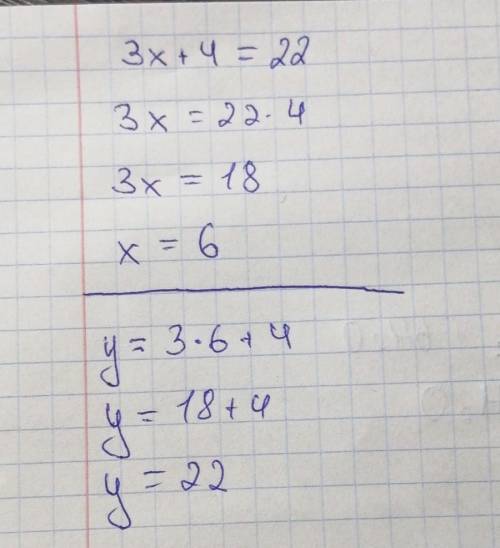 3x + 4 = 22
3x = 22 · 4
3x = 18
x = 6
y = 3 · 6 + 4
y = 18 + 4
y = 22